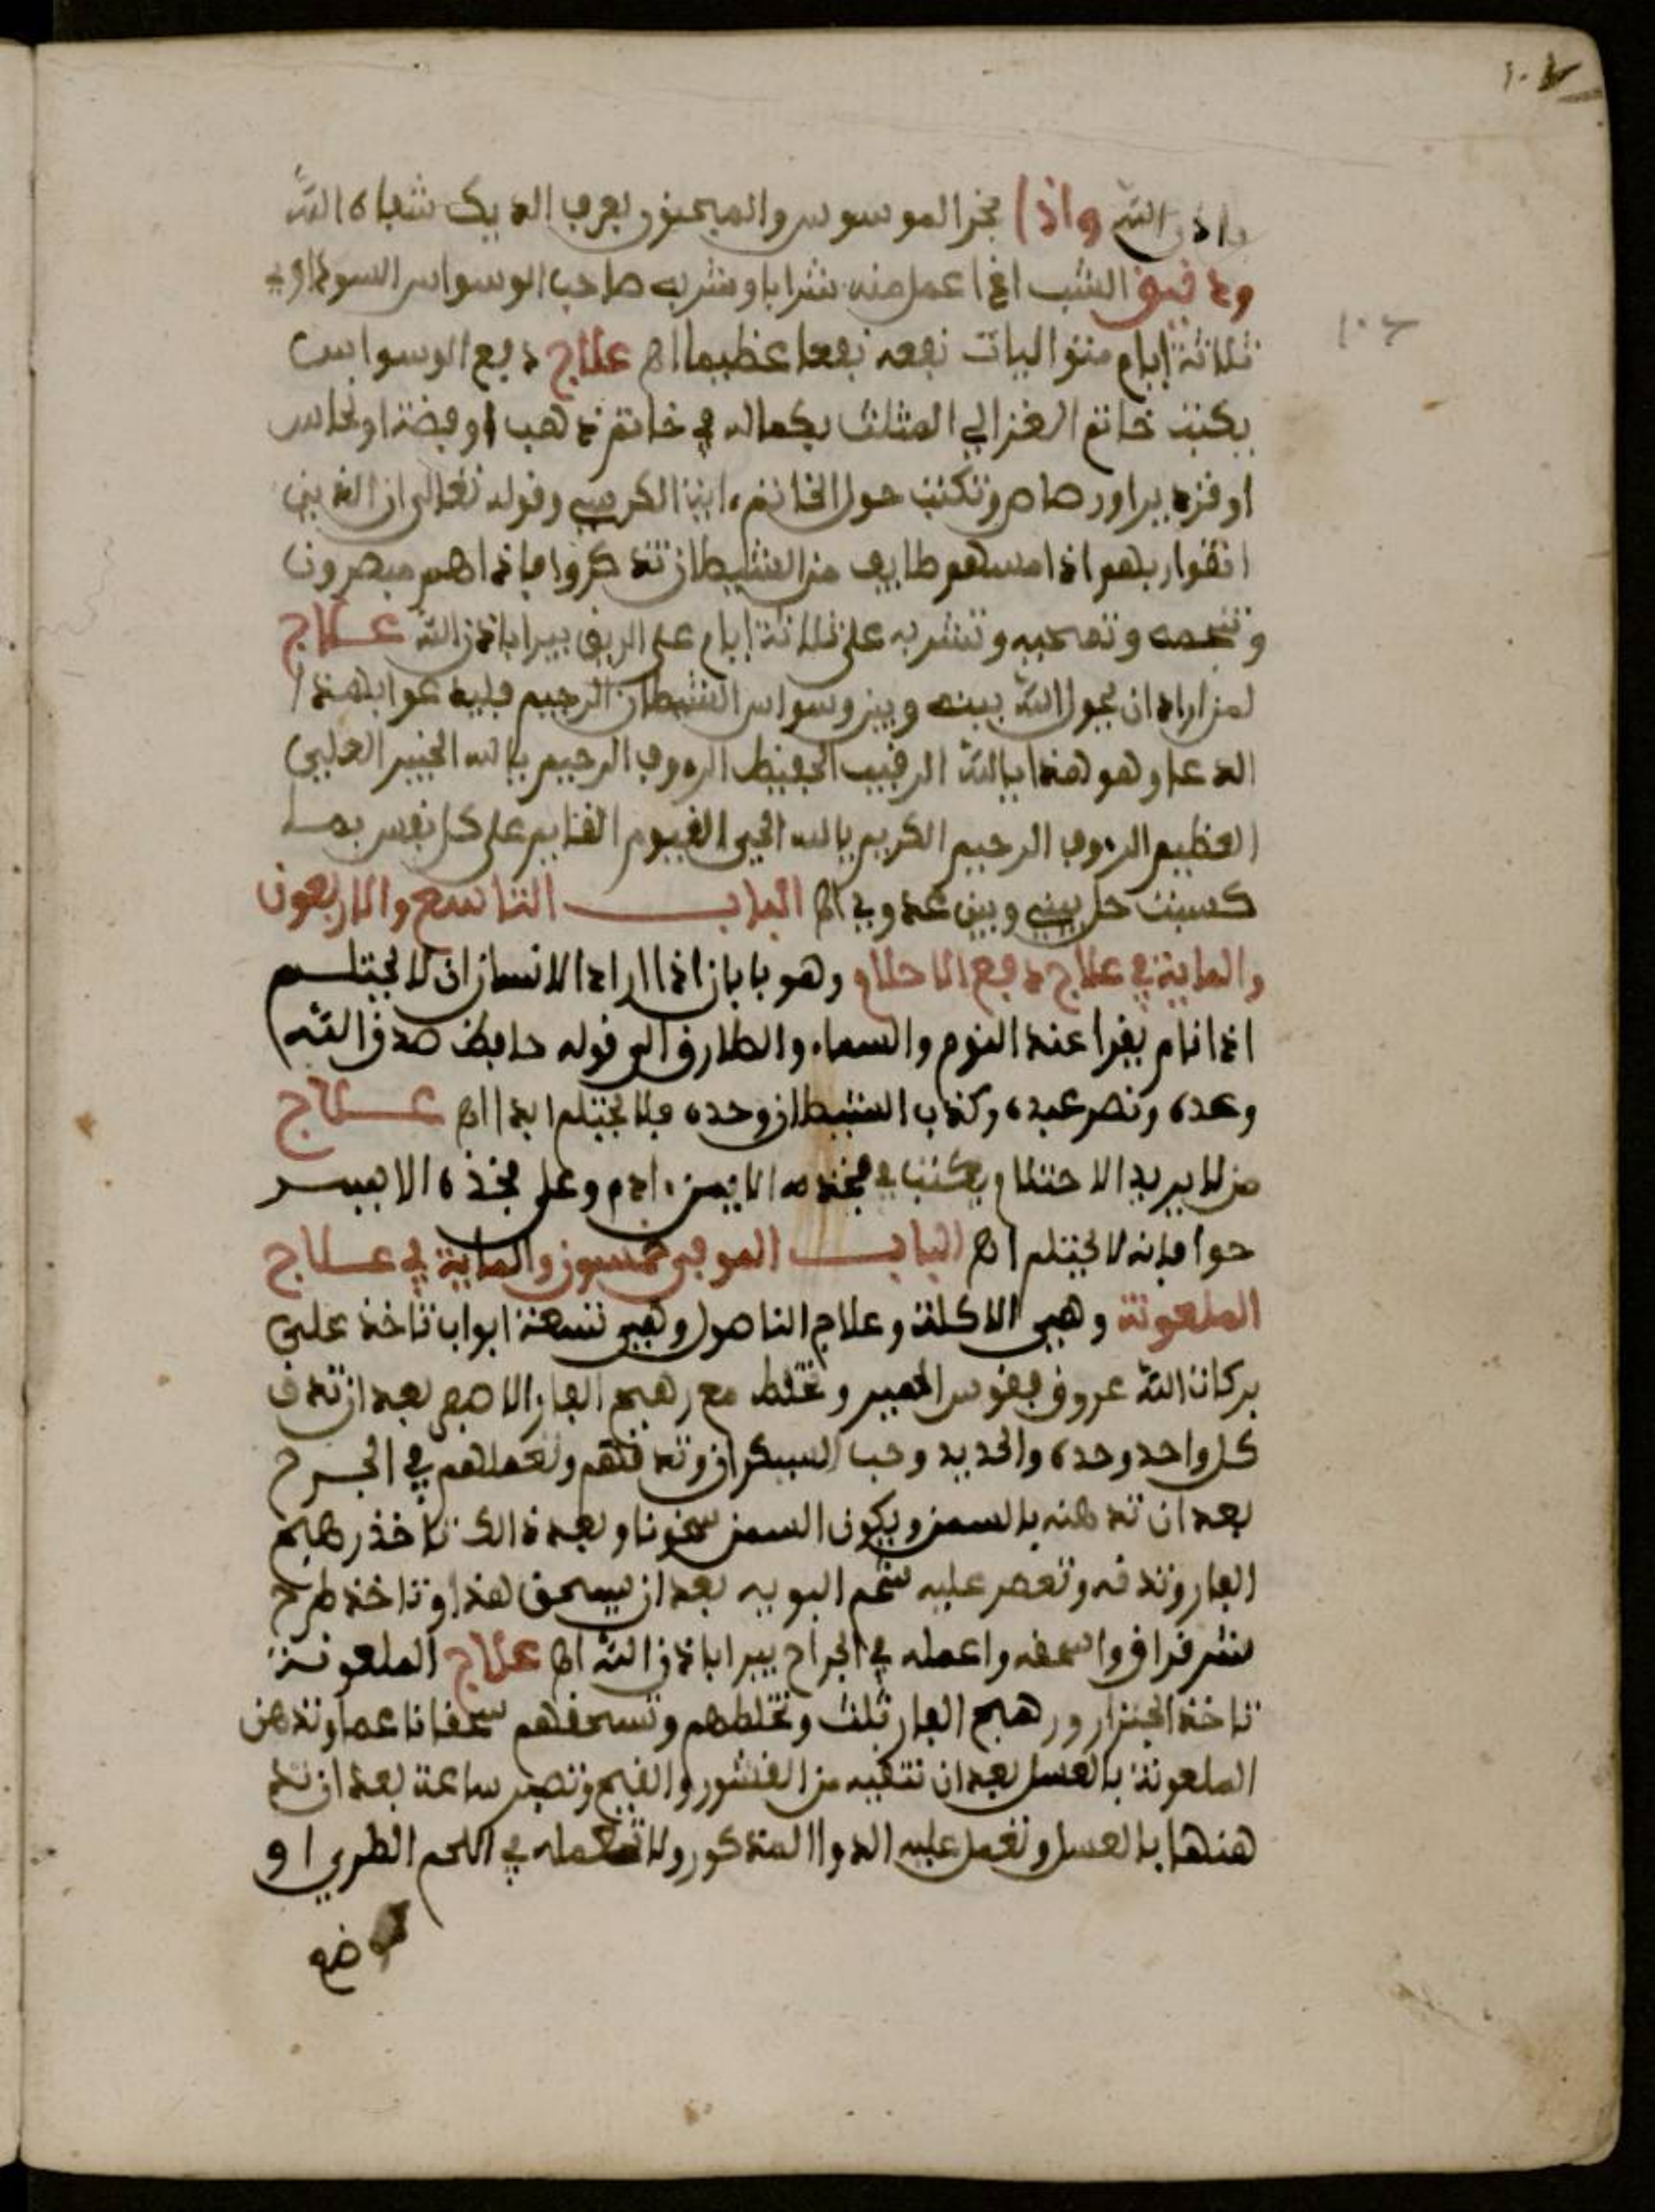 ١٠٧
باذن الله واذا بخر الموسوس والمجنون بعرف الديك شفاه الله
ودقيق الشب اذا عمل منه شرابا وشربه صاحب الوسواس السوداوي
ثلاثة ايام متواليات نفعه نفعا عظيما اهـ علاج دفع الوسواس
يكتب خاتم الغزالي المثلث بكماله في خاتم ذهب او فضة او نحاس
او قزدير او رصاص وتكتب حول الخاتم ءاية الكرسي وقوله تعالى ان الذين
اتقوا ربهم اذا مسهم طايف من الشيطان تذكروا فاذا هم مبصرون
و وتمحيه وتشربه على ثلاثة ايام على الريق يبرا باذن الله عـــلاج
لمن اراد ان يحول الله بينه وبين وسواس الشيطان الرجيم فليدعوا بهذا
الدعا وهو هذا يا الله الرقيب الحفيظ الرءوف الرحيم يا الله الخبير العلي
العظيم الرءوف الرحيم الكريم يا الله الحي القيوم القايم على كل نفس بما
كسبت حل بيني وبين عدوي اهـ البابـــــ التاسع والاربعون
والماية في علاج دفع الاحلام وهو بابان اذا اراد الانسان ان لا يحتلــم
اذا نام يقرا عند النوم والسماء والطارق الى قوله حافظ صدق الله
وعده ونصر عبده وكذب الشيطان وحده فلا يحتلم ابدا اهـ عـــلاج
من لا يريد الاحتلام يكتب في فخذه الايمن ءادم وعلى فخذه الايســر
حوا فانه لا يحتلم اهـ البابـــ الموفي خمسون والماية في عـــلاج
الملعونة وهي الاكلة وعلام الناصول وهي تسعة ابواب تاخذ على
بركات الله عروق فقوس الحمير وتخلط مع رهج الفار الاصفر بعد ان تدق
كل واحد وحده والحديد وحب السيكران وتدقهم وتعملهم في الجـــرح
بعد ان تدهنه بالسمن ويكون السمن سخونا وبعد ذالك تاخذ رهج
الفار وتدقه وتعصر عليه شحم البويه بعد ان يسحق هذا وتاخذ طرح
شرقراق واسحقه واعمله في الجراح يبرا باذن الله اهـ علاج الملعونـة
تاخذ الجنزار ورهج الفار ثلث وتخلطهم وتسحقهم سحقا ناعما وتدهن
الملعونة بالعسل بعد ان تنقيه من القشور والقيح وتصبر ساعة بعد ان تد
هنها بالعسل وتعمل عليه الدوا المذكور ولا تعمله في اللحم الطري او
ضع